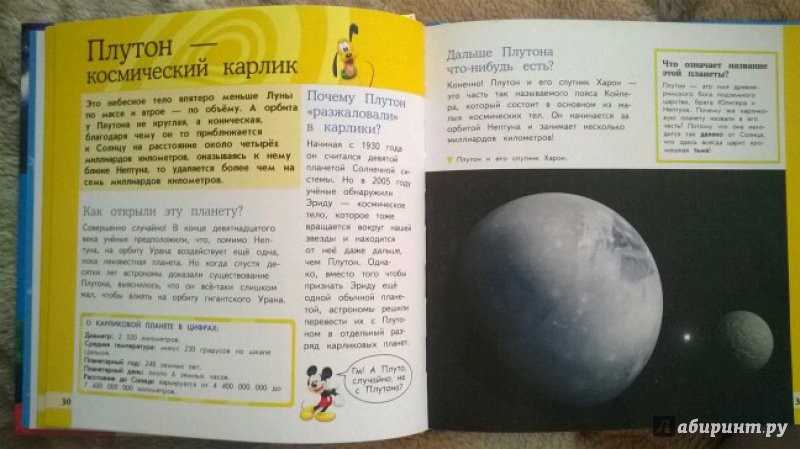 Плутон —
космический карлик
Это небесное тело впятеро меньше Луны
по массе и втрое — по объёму. А орбита
у Плутона не круглая, а коническая,
благодаря чему он то приближается
к Солнцу на расстояние около четырёх
миллиардов километров, оказываясь к нему
ближе Нептуна, то удаляется более чем на
семь миллиардов километров.
Как открыли эту планету?
Совершенно случайно! В конце девятнадцатого
века учёные предположили, что, помимо Неп-
туна, на орбиту Урана воздействует ещё одна,
пока неизвестная планета. Но когда спустя де-
сятки лет астрономы доказали существование
Плутона, выяснилось, что он всё-таки слишком
мал, чтобы влиять на орбиту гигантского Урана.
О КАРЛИКОВОЙ ПЛАНЕТЕ В ЦИФРАХ:
Диаметр: 2 320 километров.
Средняя температура: минус 230 градусов по шкале
Цельсия.
Планетарный год: 248 земных лет.
Планетарный день: около 6 земных часов.
Расстояние до Солнца: варьируется от 4 400 000 000 до
7 400 000 000 километров.
30
Почему Плутон
«разжаловали»
в карлики?
Начиная с 1930 года
он считался девятой
планетой Солнечной си-
стемы. Но в 2005 году
учёные обнаружили
Эриду — космическое
тело, которое тоже
вращается вокруг нашей
звезды и находится
от неё даже дальше,
чем Плутон. Одна-
ко, вместо того чтобы
признать Эриду ещё
одной обычной плане-
той, астрономы решили
перевести их с Плуто-
ном в отдельный раз-
ряд карликовых планет.
Гм! А Плуто,
случайно, не
с Плутона?
Дальше Плутона
что-нибудь есть?
Конечно! Плутон и его спутник Харон —
это часть так называемого пояса Койпе-
ра, который состоит в основном из ма-
лых космических тел. Он начинается за
орбитой Нептуна и занимает несколько
миллиардов километров!
Плутон и его спутник Харон.
Что означает название
этой планеты?
Плутон — это имя древне-
римского бога подземного
царства, брата Юпитера и
Нептуна. Почему же карлико-
вую планету назвали в его
честь? Потому что она нахо-
дится так далеко от Солнца,
что здесь всегда царит кро-
мешная тьма!
3
Лабиринт.ру